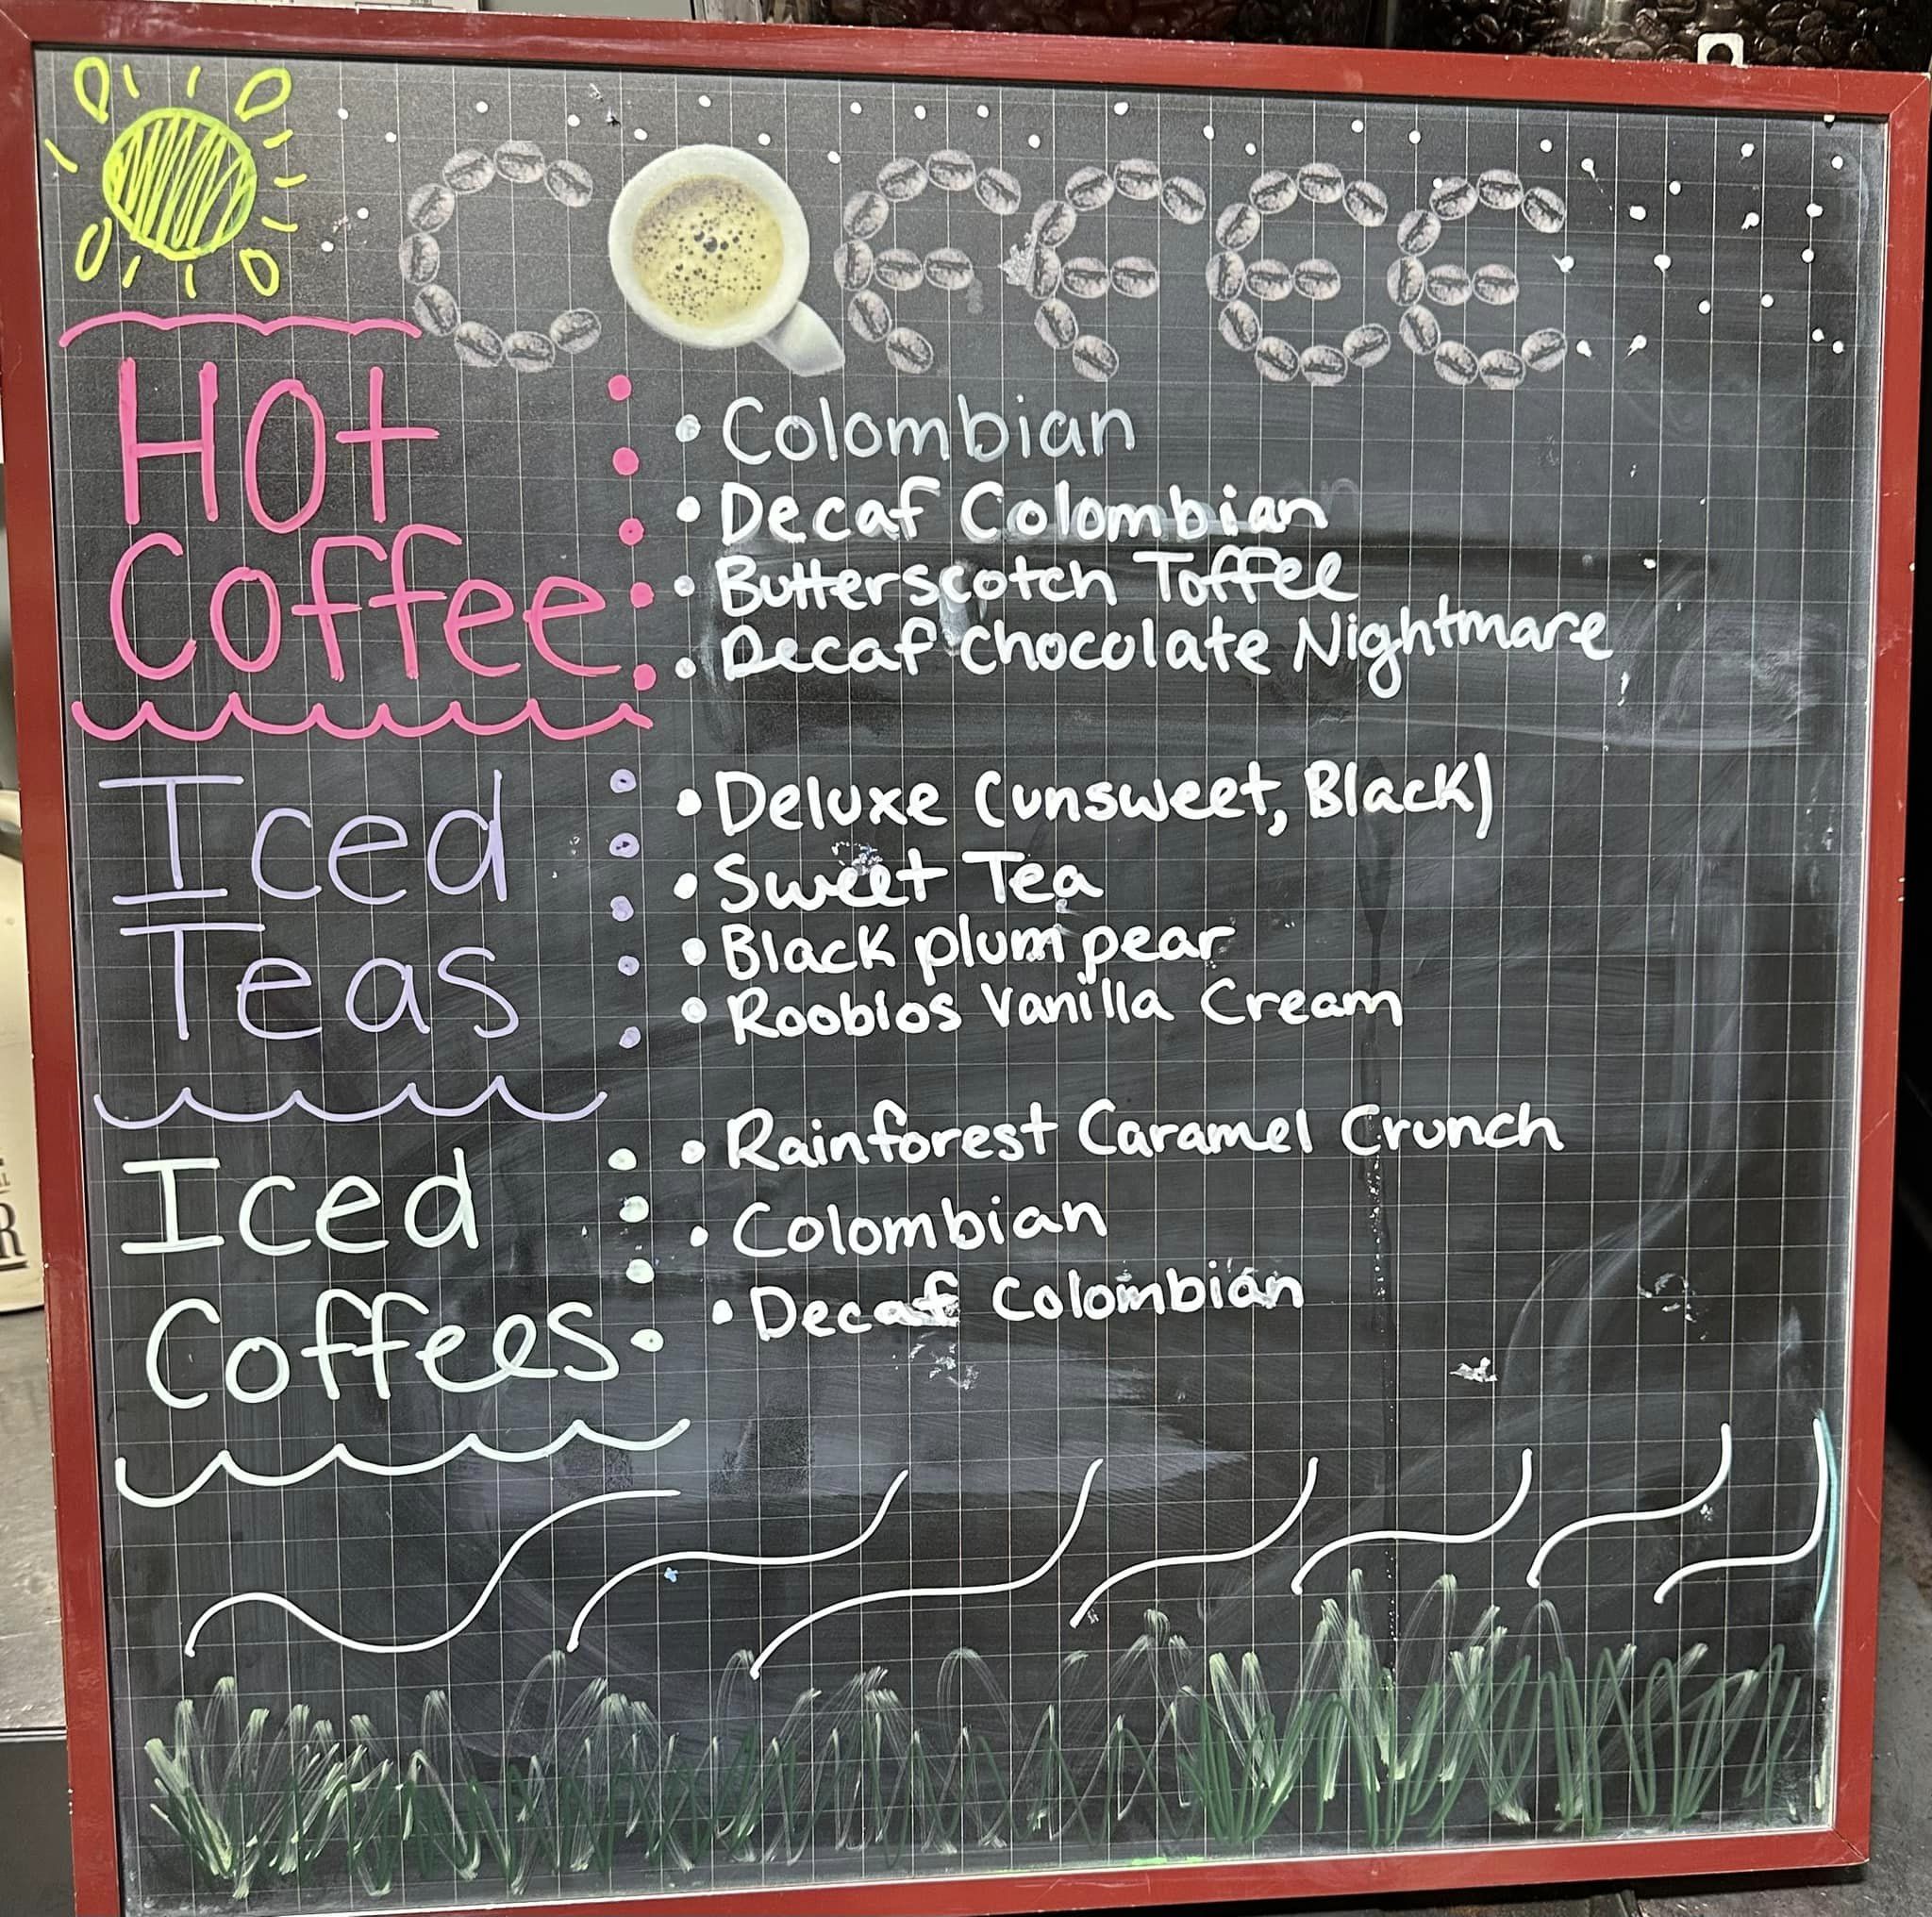 COFFEE
Hot
Coffee
• Colombian
• Decaf Colombian
• Butterscotch Toffee
• Decaf Chocolate Nightmare
Iced
Teas
• Deluxe (unsweet, Black)
• Sweet Tea
• Black plum pear
• Roobios Vanilla Cream
Iced
Coffees
• Rainforest Caramel Crunch
• Colombian
• Decaf Colombian